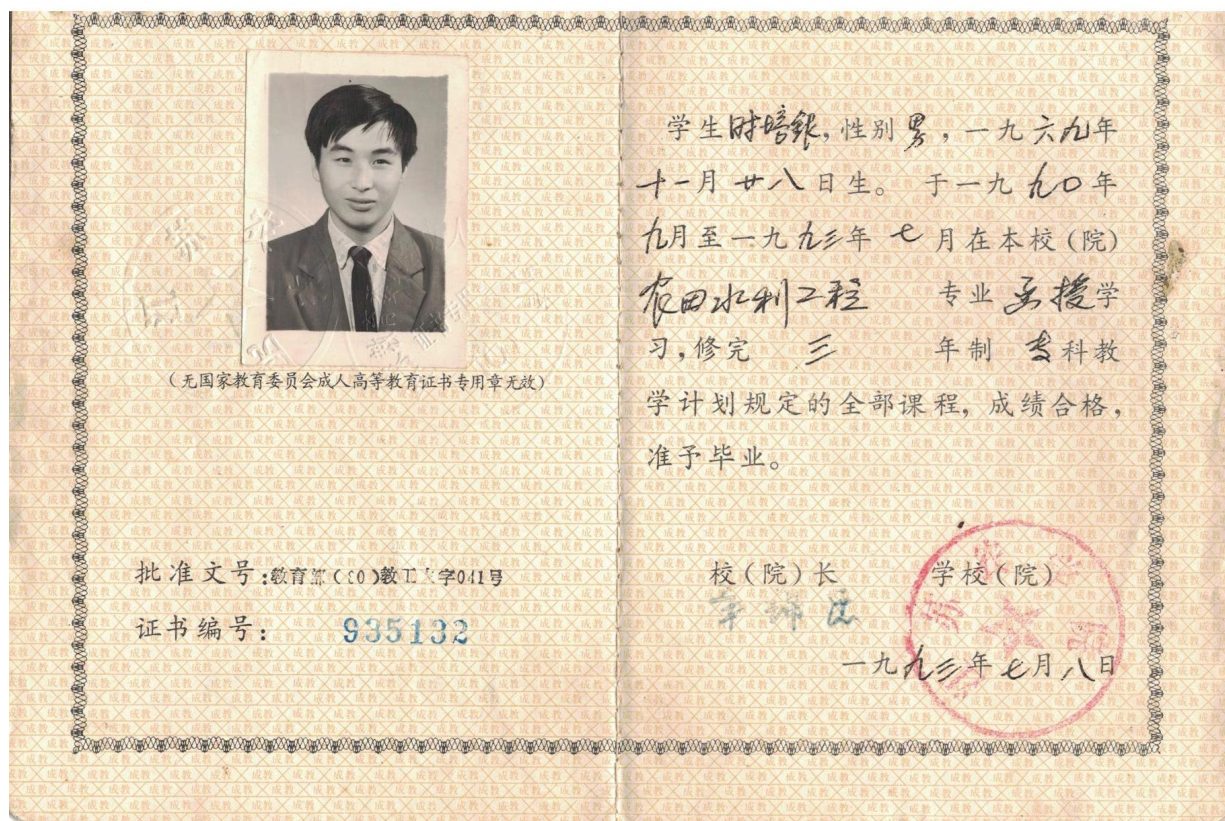 (无国家教育委员会成人高等教育证书专用章无效)
批准文号:教育部(80)教工农字041号
证书编号: 935132
学生时培银,性别男,一九六九年
十一月廿八日生。于一九九〇年
九月至一九九三年七月在本校(院)
农田水利工程 专业函授学
习,修完 三 年制 专科教
学计划规定的全部课程,成绩合格,
准予毕业。
校(院)长 学校(院)
一九九三年七月八日